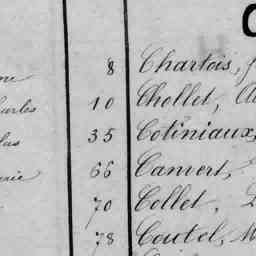 C
8 Chartois,
harles 10 Chollet,
35 Cotiniaux,
66 Canvert,
70 Collet,
78 Coutel, M